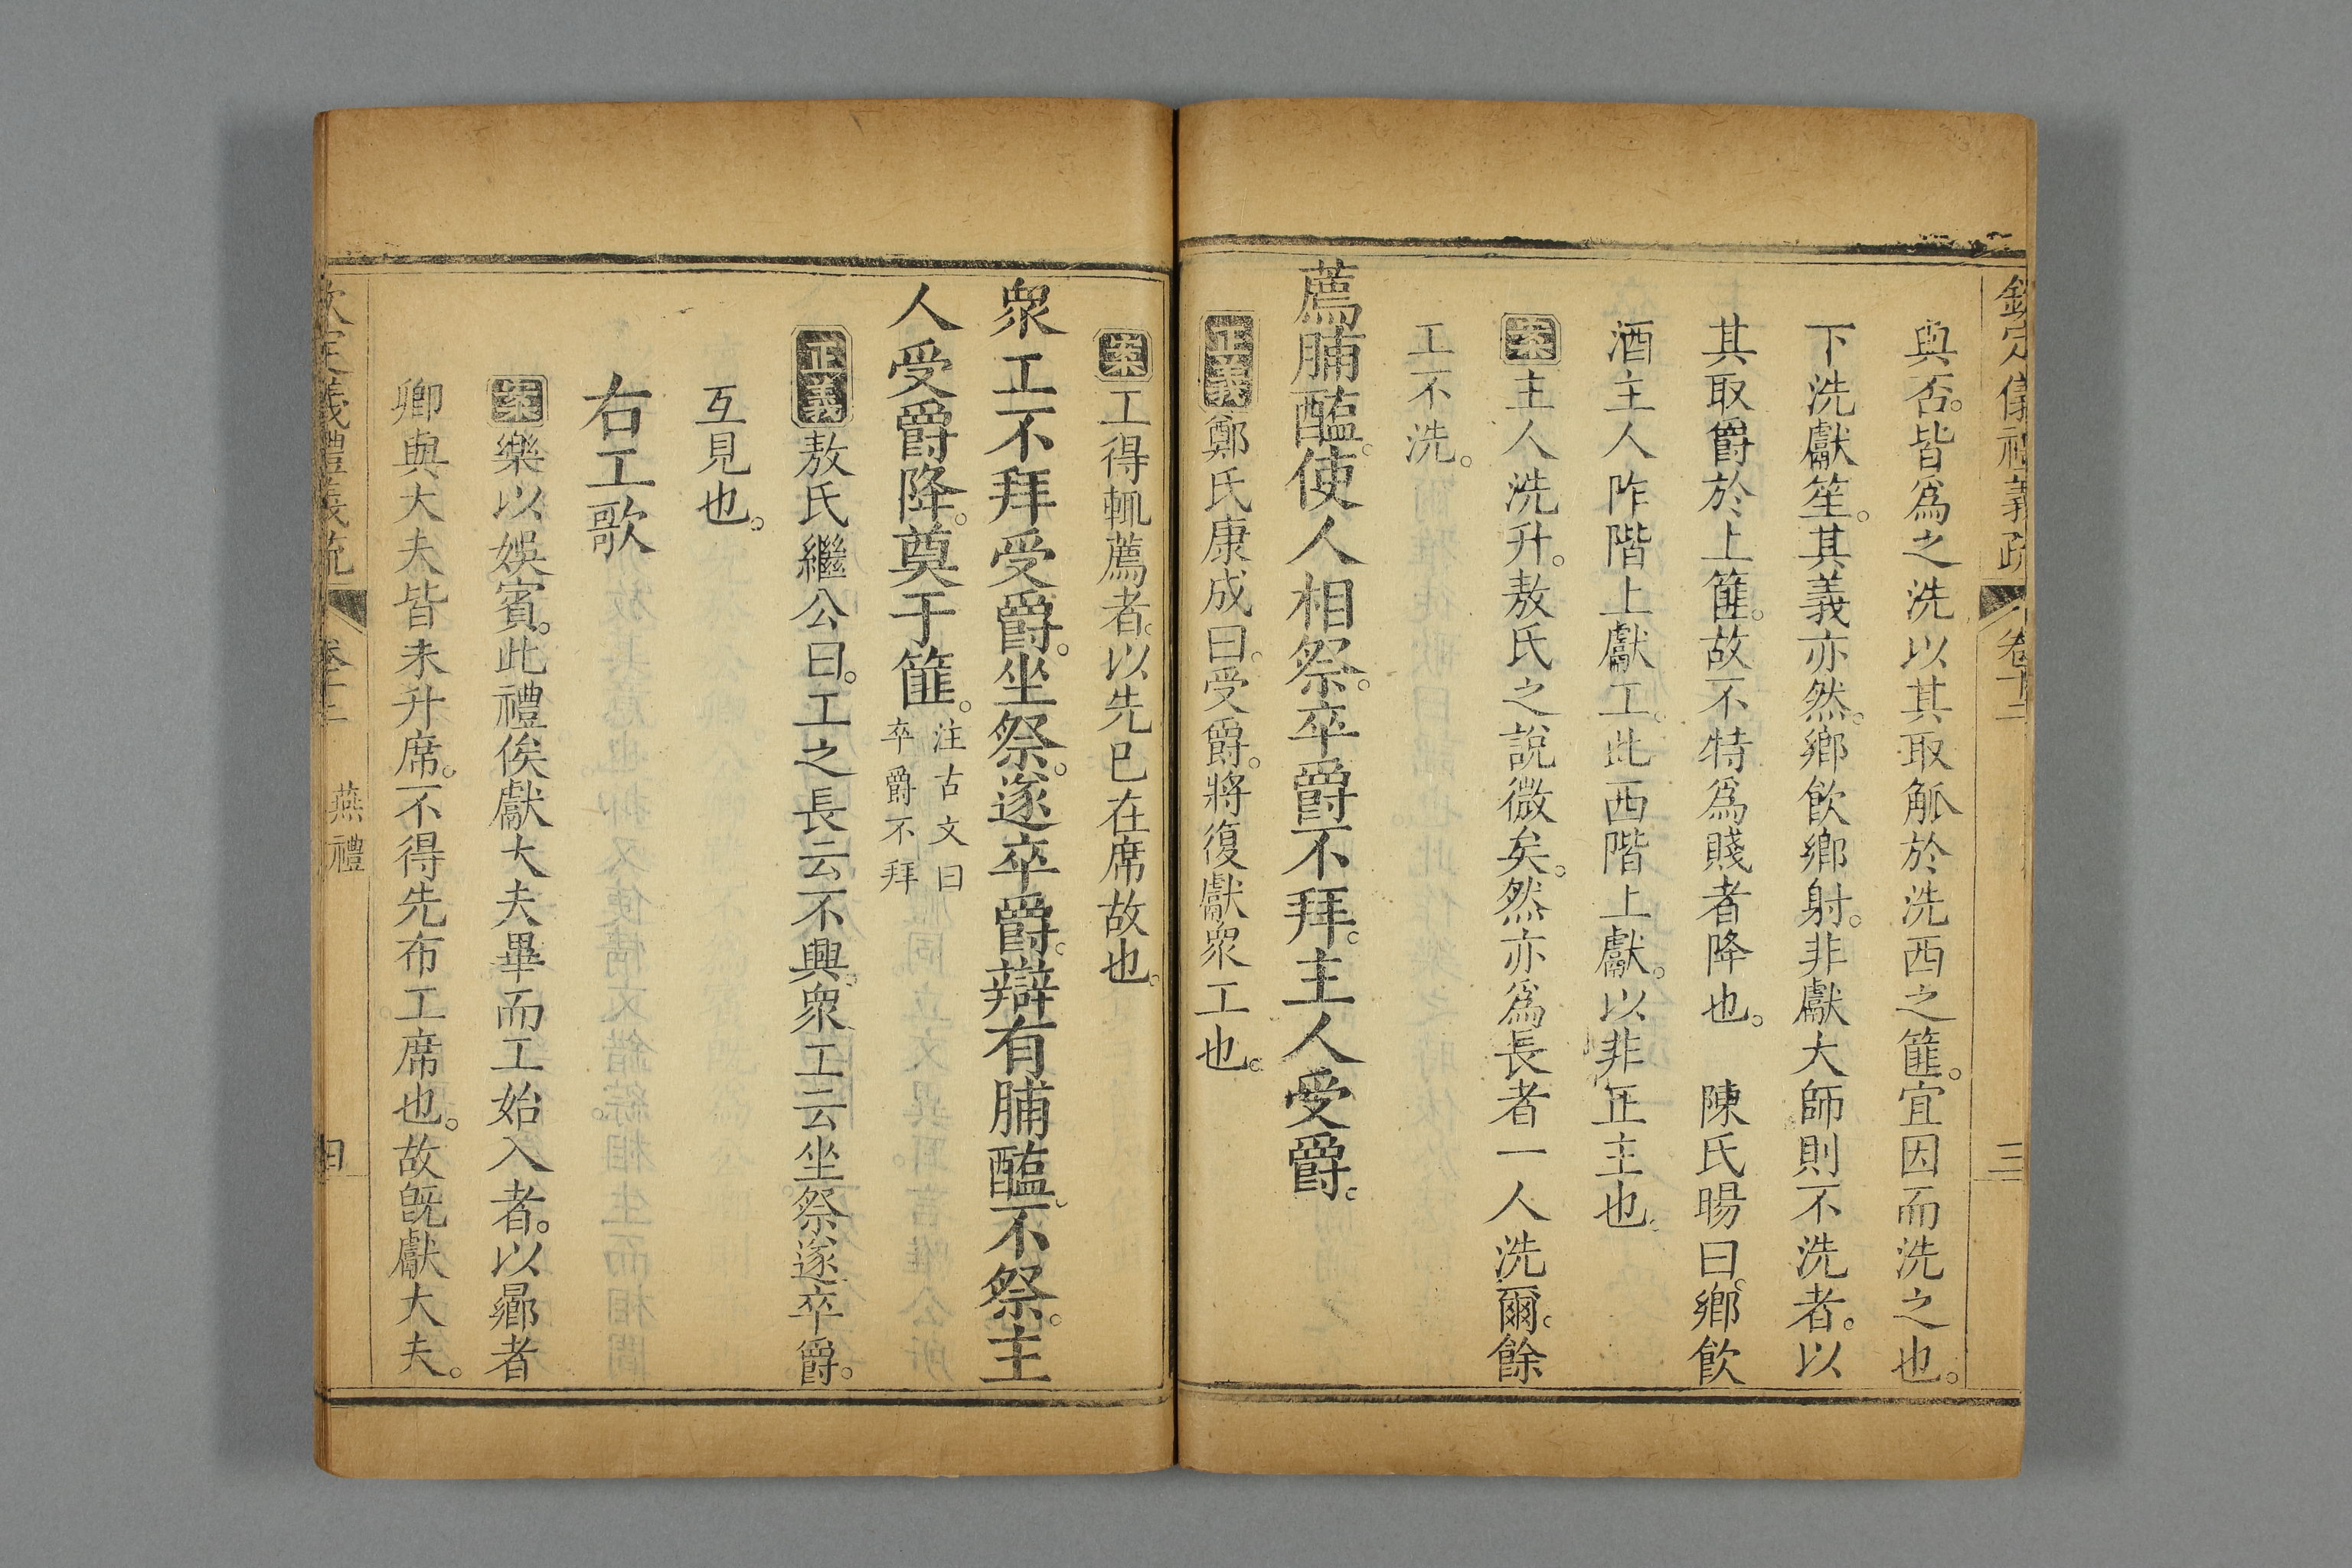 欽定儀禮義疏 卷十二 三
與否。皆爲之洗以其取觚於洗西之篚。宜因而洗之也。
下洗獻笙。其義亦然。鄉飲鄉射。非獻大師則不洗者。以
其取爵於上篚。故不特爲賤者降也。 陳氏暘曰。鄉飲
酒主人阼階上獻工。此西階上獻。以非正主也。
案主人洗升。敖氏之說微矣。然亦爲長者一人洗爾。餘
工不洗。
薦脯醢。使人相祭。卒爵不拜。主人受爵。
正義鄭氏康成曰。受爵。將復獻衆工也。
案工得輒薦者。以先已在席故也。
衆工不拜受爵。坐祭。遂卒爵。辯有脯醢。不祭。主
人受爵降。奠于篚。注古文曰卒爵不拜
正義敖氏繼公曰。工之長云不興。衆工云坐祭遂卒爵。
互見也。
右工歌
案樂以娛賓。此禮俟獻大夫畢而工始入者。以曏者
卿與大夫皆未升席。不得先布工席也。故旣獻大夫。
欽定儀禮義疏 卷十二 燕禮 四